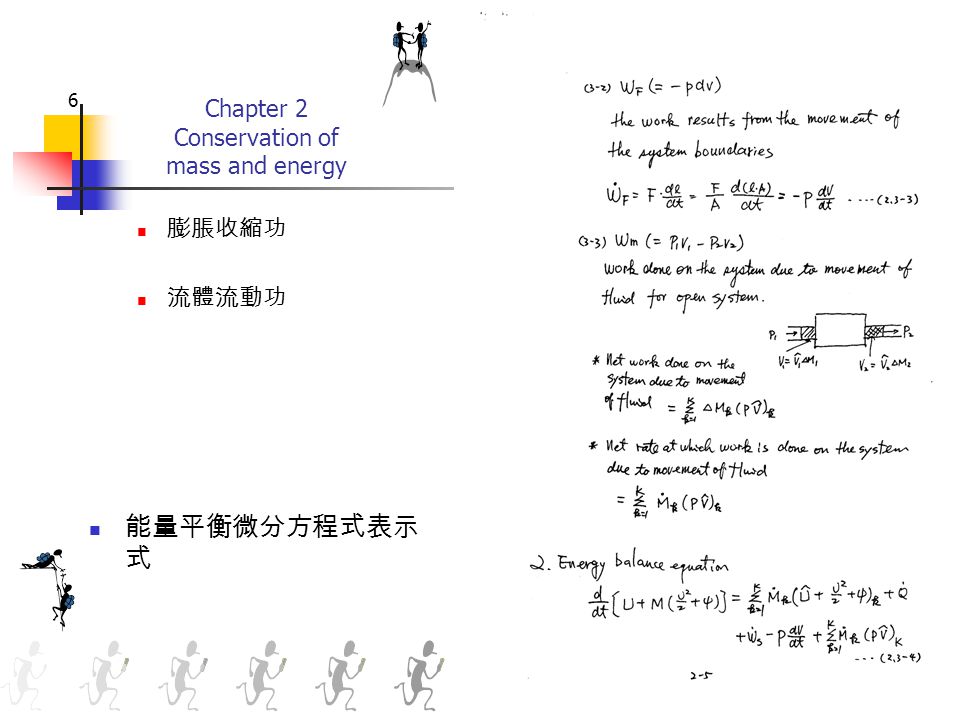 6
Chapter 2
Conservation of
mass and energy
膨脹收縮功
流體流動功
能量平衡微分方程式表示
式
(3-2) W_F (= -pdv)
the work results from the movement of
the system boundaries
Ẇ_F = F·dl/dt = F/A d(l·A)/dt = -p dV/dt ....(2.3-3)
(3-3) Wm (= P₁V₁ - P₂V₂)
work done on the system due to movement of
fluid for open system.
P₁ P₂
V₁=V̂₁ΔM₁ V₂=V̂₂ΔM₂
* Net work done on the
system due to movement
of fluid = Σ_{k=1}^{K} ΔM_k (PV̂)_k
* Net rate at which work is done on the system
due to movement of fluid
= Σ_{k=1}^{K} Ṁ_k (PV̂)_k
2. Energy balance equation
d/dt [U + M(υ²/2 + ψ)] = Σ_{k=1}^{K} Ṁ_k (Û + υ²/2 + ψ)_k + Q̇
+ Ẇ_s - P dV/dt + Σ_{k=1}^{K} Ṁ_k (PV̂)_K
...(2.3-4)
2-5